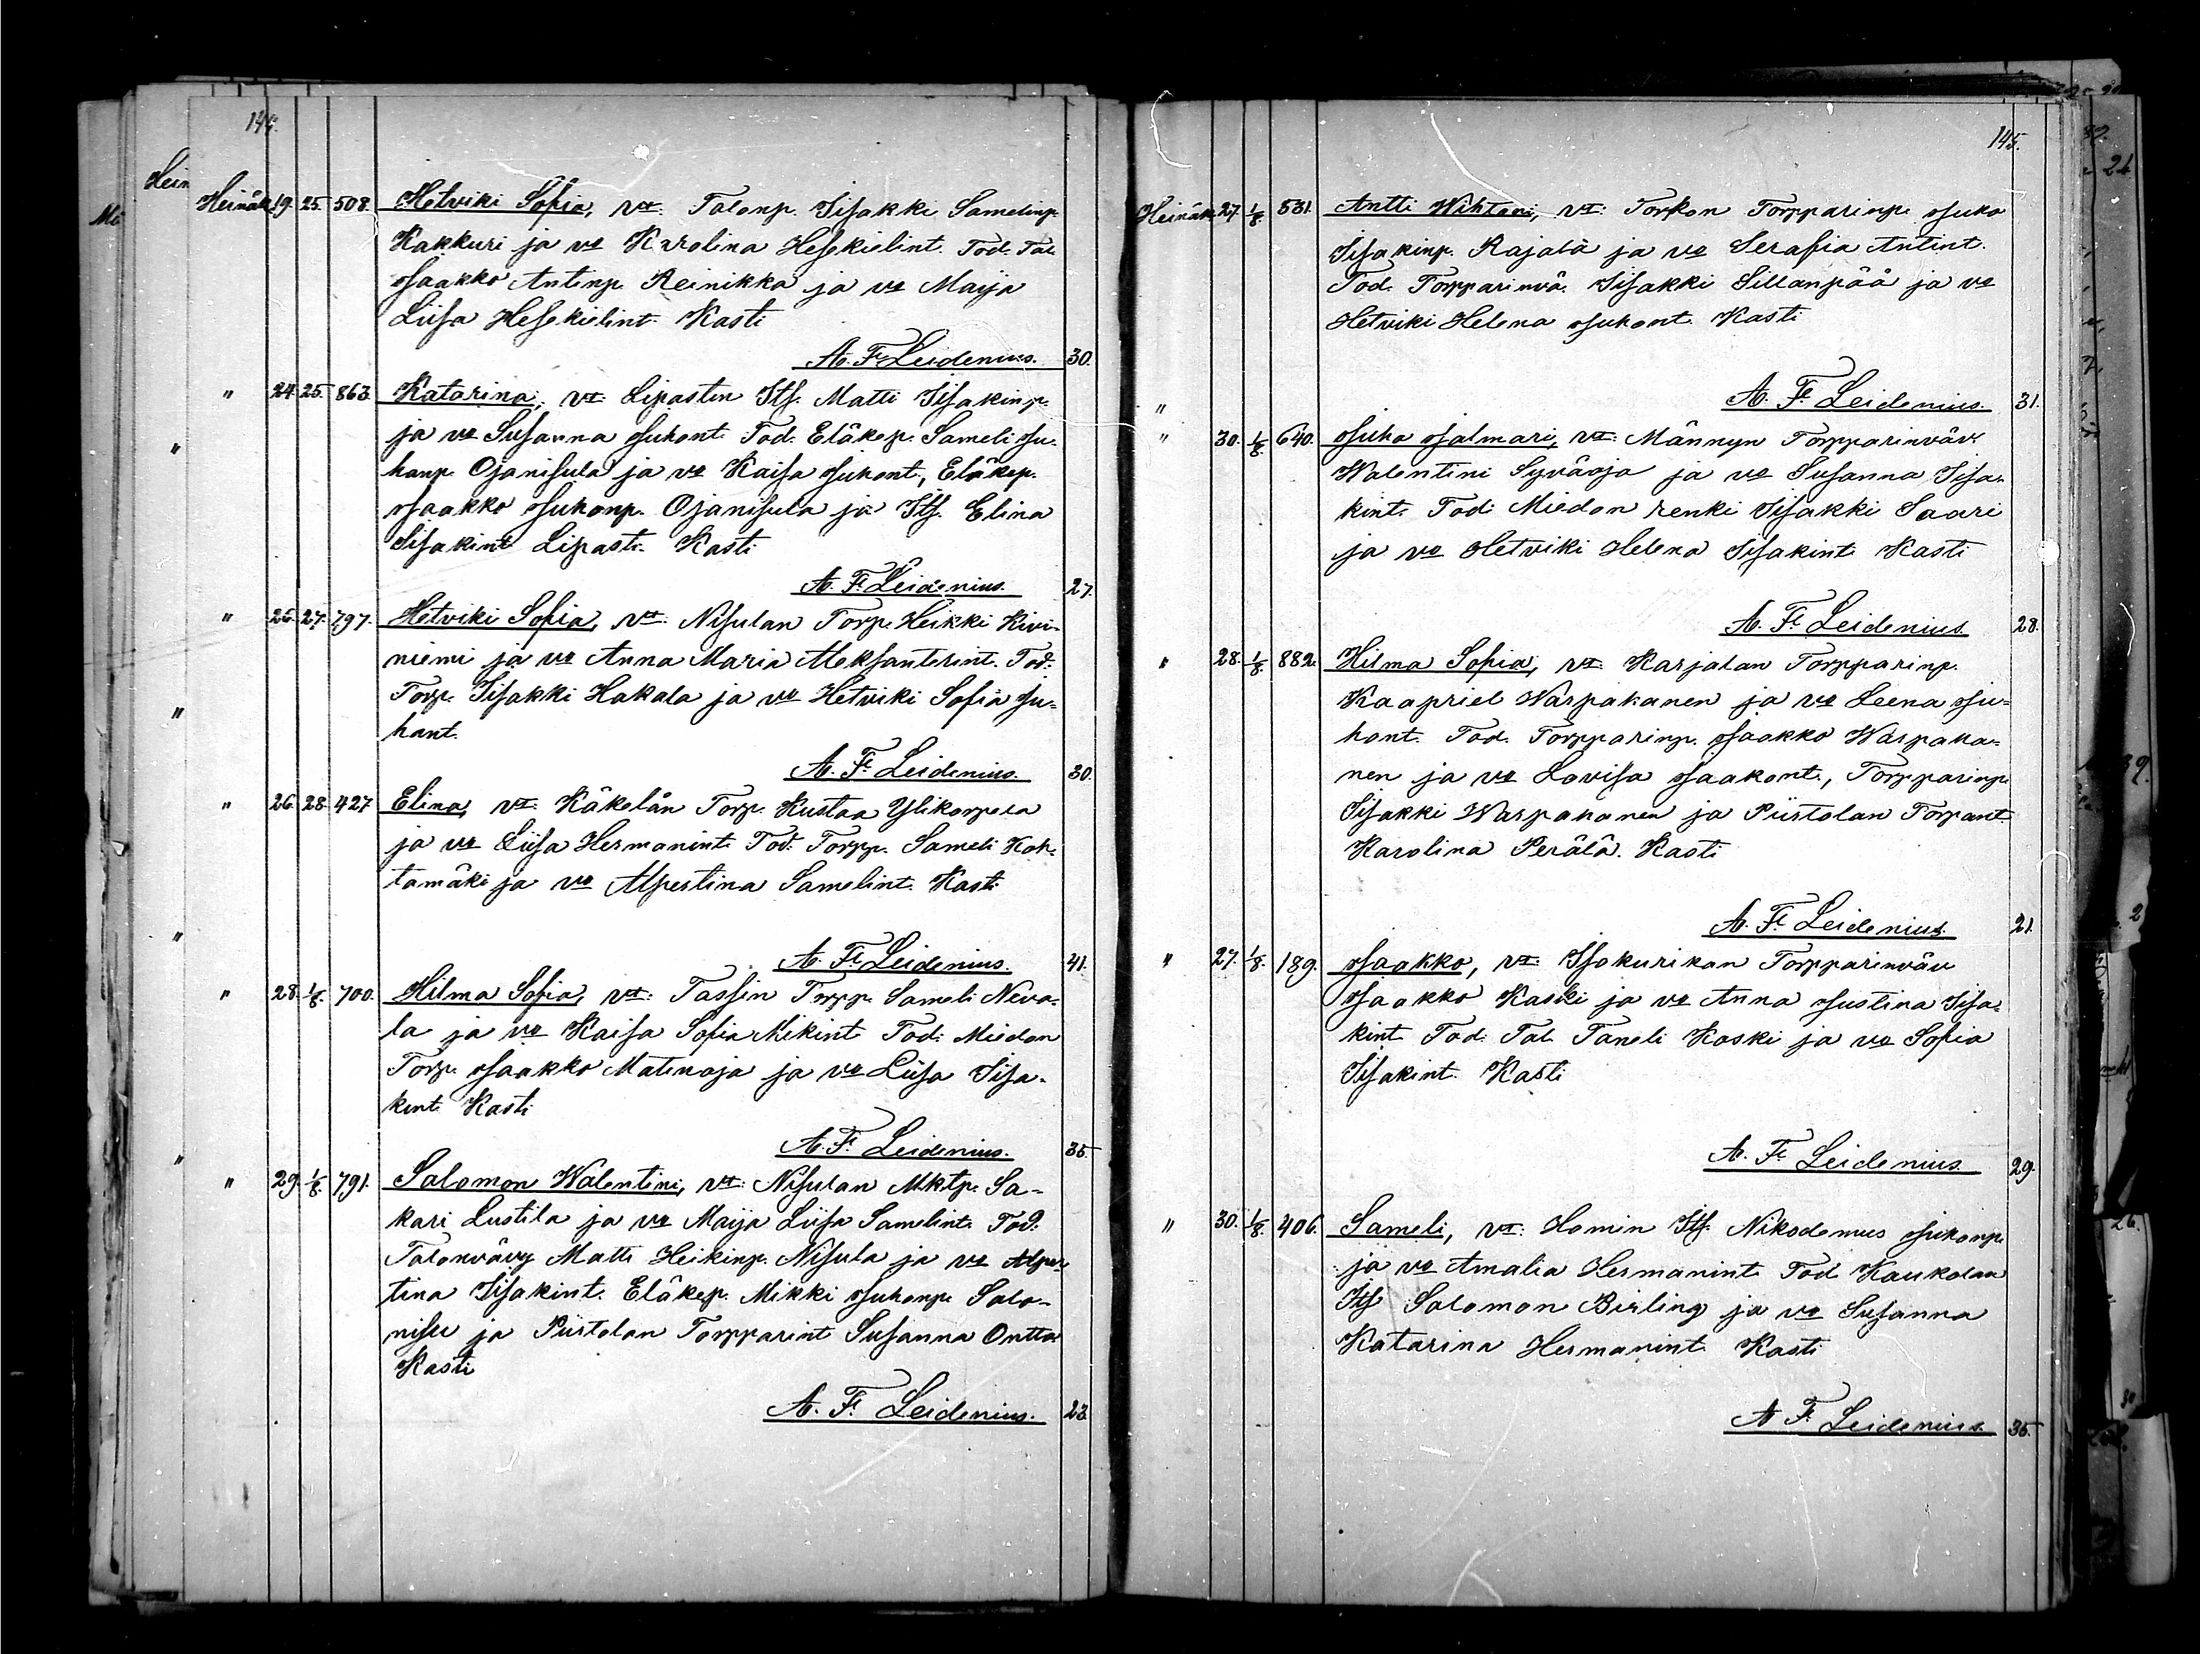 144.
Heinäk. 19. 25. 508. Hetviki Sofia, vt: Talonp. Iisakki Samelinp.
Kakkuri ja vo Karolina Hesekielint. Tod. Tal.
Jaakko Antinp. Reinikka ja vo Maija
Liisa Hesekielint. Kasti
A. F. Leidenius. 30.
" 24. 25. 863. Katarina, vt: Lipastin Its. Matti Iisakinp.
ja vo Susanna Juhont. Tod. Eläkep. Sameli Ju-
hanp. Ojanisula ja vo Kaisa Juhont., Eläkep.
Jaakko Juhonp. Ojanisula ja Its. Elina
Iisakint Lipasti. Kasti
A. F. Leidenius. 27.
" 26. 27. 797. Hetviki Sofia, vt: Nisulan Torp. Heikki Kivi-
niemi ja vo Anna Maria Aleksanterint. Tod.
Torp. Iisakki Hakala ja vo Hetviki Sofia Ju-
hant.
A. F. Leidenius. 30.
" 26. 28. 427. Elina, vt: Käkelän Torp. Kustaa Ylikorpela
ja vo Liisa Hermanint. Tod. Torpp. Sameli Koh-
tamäki ja vo Alpertina Samelint. Kasti
A. F. Leidenius. 41.
" 28. 1/8. 700. Hilma Sofia, vt: Tassin Torpp. Sameli Neva-
la ja vo Kaisa Sofia Mikint Tod: Miedon
Torp. Jaakko Matinoja ja vo Liisa Iisa-
kint. Kasti
A. F. Leidenius. 35.
" 29. 1/8. 791. Salomon Walentini, vt: Nisulan Mktp. Sa-
kari Lustila ja vo Maija Liisa Samelint. Tod.
Talonvävy Matti Heikinp. Nisula ja vo Alper
tina Iisakint. Eläkep. Mikki Juhonp. Salo-
nisu ja Piirtolan Torpparint Susanna Ontto
Kasti
A. F. Leidenius. 23.
145.
Heinäk. 27. 1/8. 531. Antti Wihtori, vt: Torkon Torpparinp. Juho
Iisakinp. Rajala ja vo Serafia Antint.
Tod. Torpparinvä. Iisakki Sillanpää ja vo
Hetviki Helena Juhont. Kasti
A. F. Leidenius. 31.
" 30. 1/8. 640. Juho Jalmari, vt: Männyn Torpparinväv.
Walentini Syväoja ja vo Susanna Iisa-
kint. Tod: Miedon renki Iisakki Saari
ja vo Hetviki Helena Iisakint Kasti
A. F. Leidenius. 28.
" 28. 1/8. 882. Hilma Sofia, vt: Karjalan Torpparinp.
Kaapriel Warpakanen ja vo Leena Ju-
hont. Tod. Torpparinp. Jaakko Warpaka-
nen ja vo Lovisa Jaakont., Torpparinp.
Iisakki Warpakanen ja Piirtolan Torpant.
Karolina Perälä. Kasti
A. F. Leidenius. 21.
" 27. 1/8. 189. Jaakko, vt: Isokurikan Torpparinväv
Jaakko Kaski ja vo Anna Justina Iisa-
kint Tod. Tal. Taneli Koski ja vo Sofia
Iisakint. Kasti
A. F. Leidenius. 29.
" 30. 1/8. 406. Sameli, vt: Homin Its. Nikodemus Juhonp.
ja vo Amalia Hermanint. Tod Kaukolan
Its Salomon Birling ja vo Susanna
Katarina Hermanint. Kasti
A. F. Leidenius. 35.